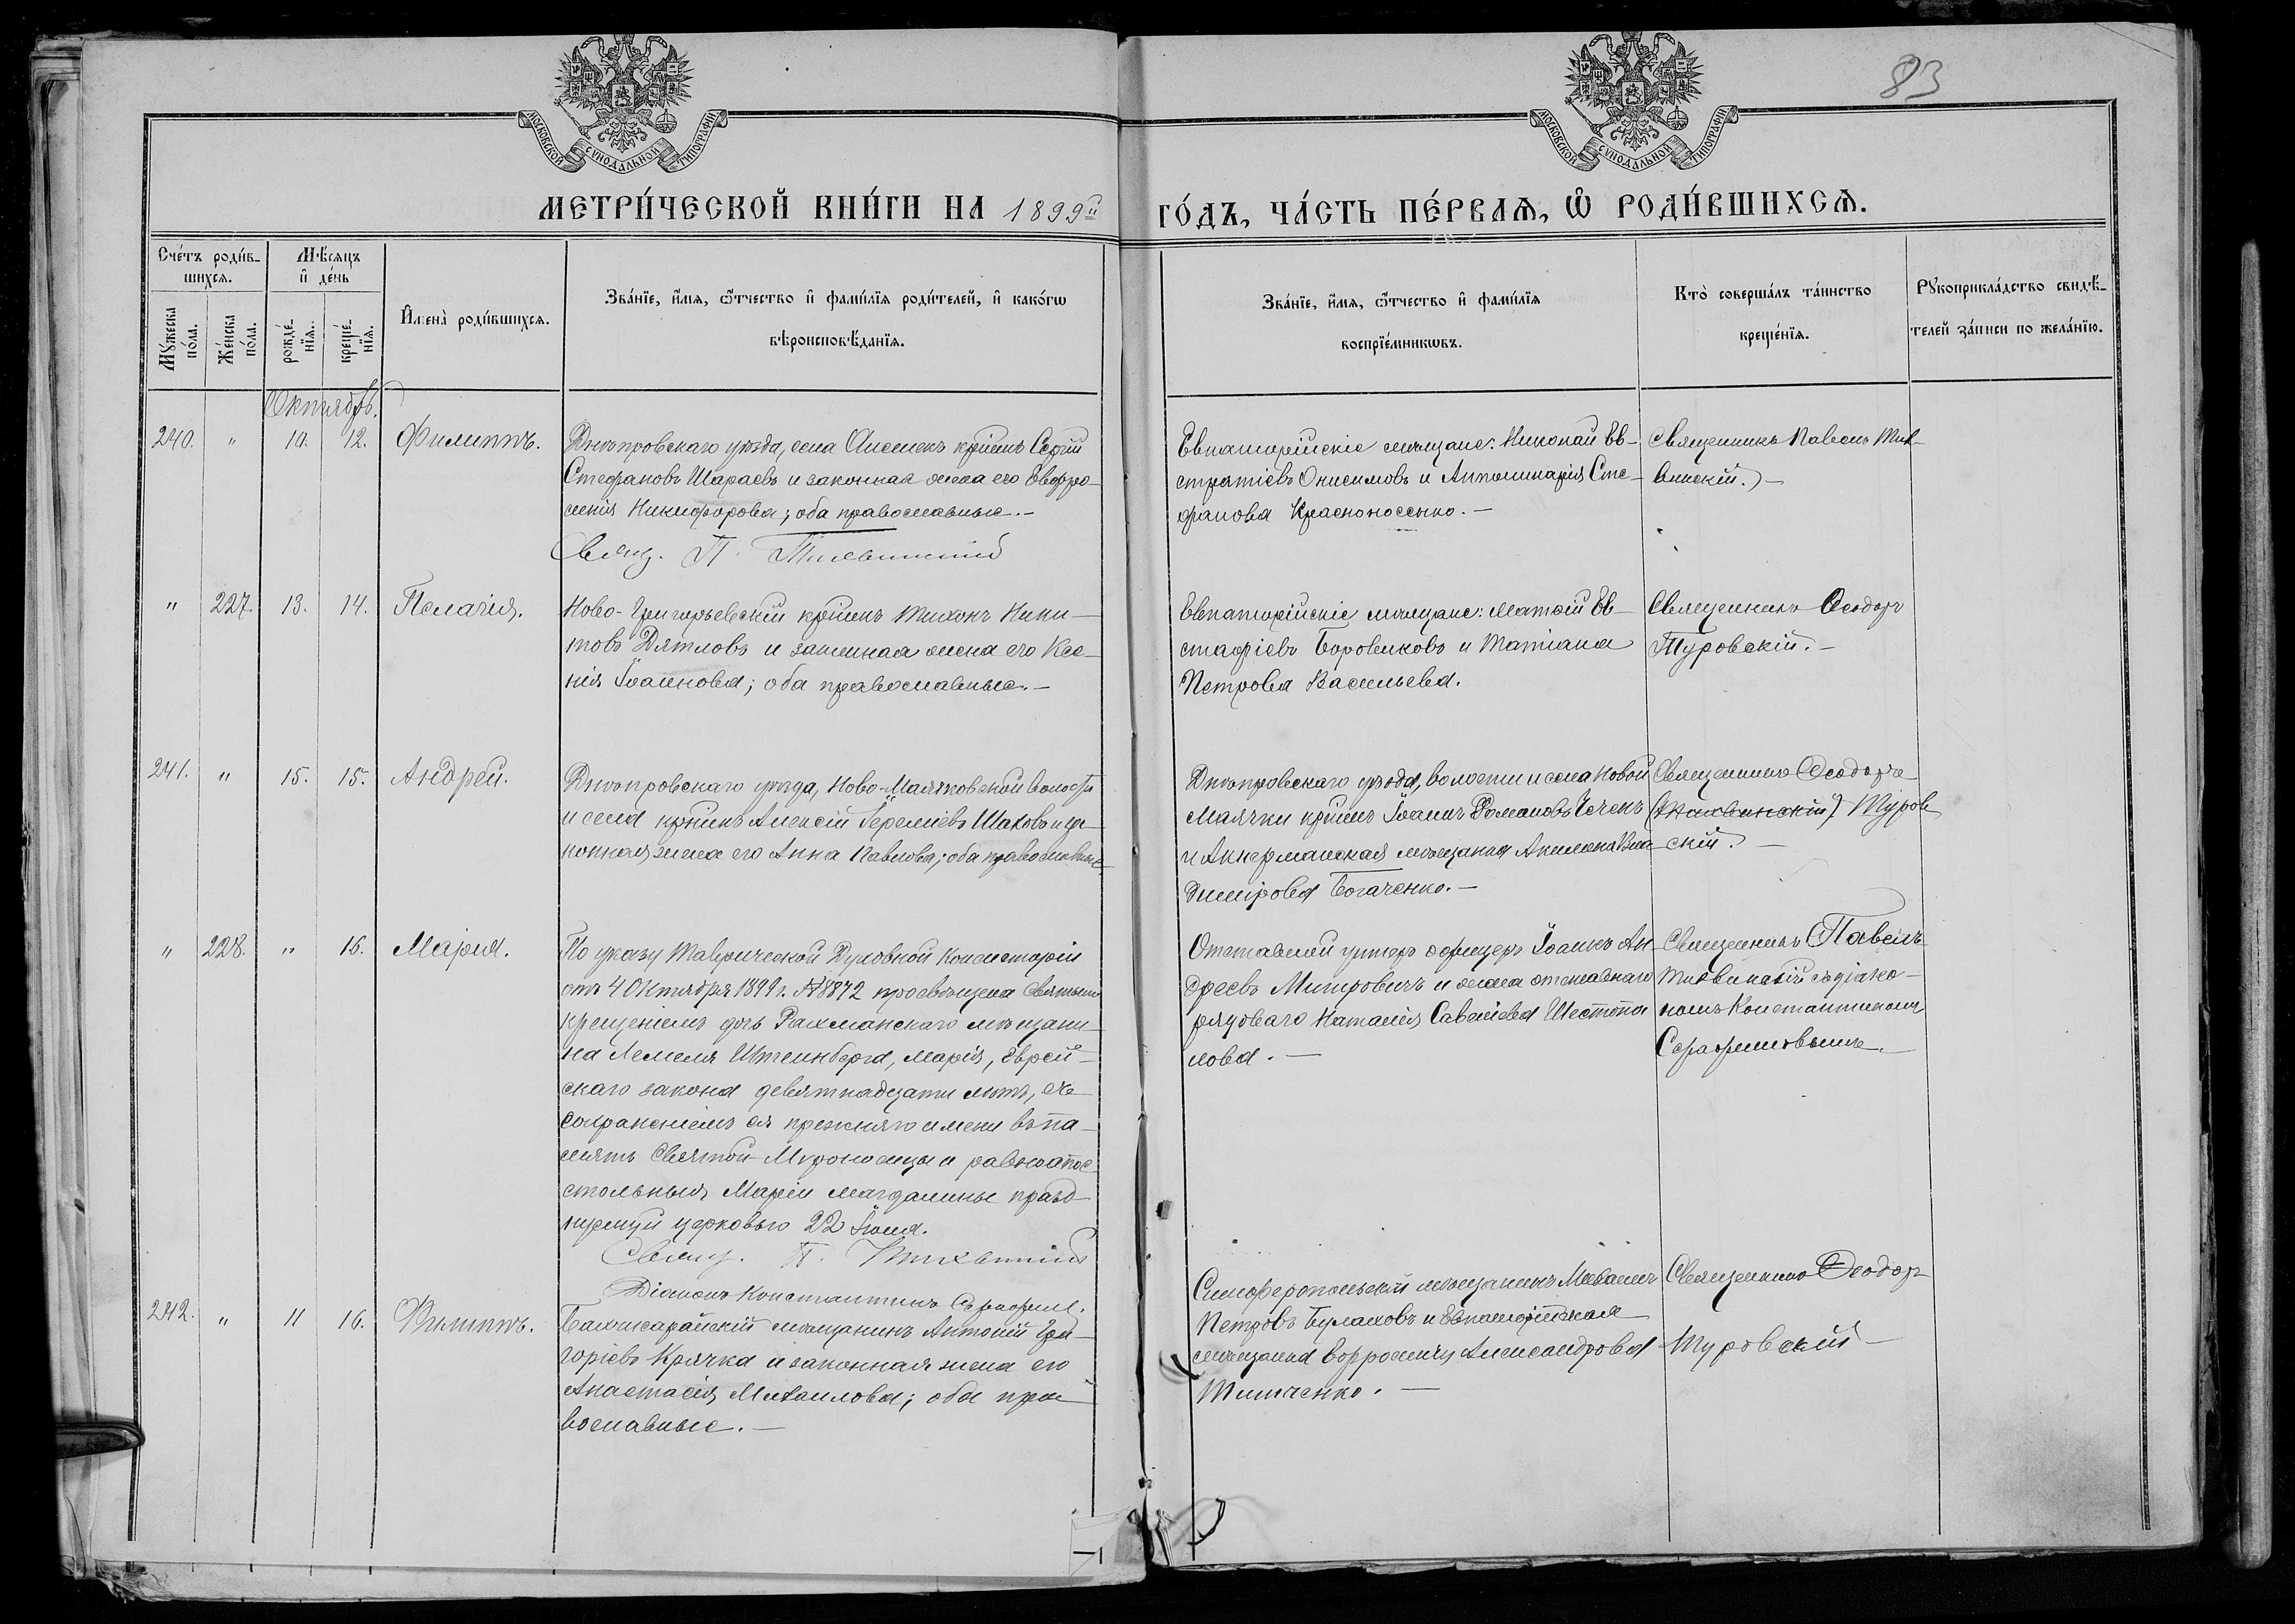 83
МОСКОВСКОЙ СУНОДАЛЬНОЙ ТИПОГРАФІИ
МОСКОВСКОЙ СУНОДАЛЬНОЙ ТИПОГРАФІИ
МЕТРИ́ЧЕСКОЙ КНИ́ГИ НА 1899й ГО́ДЪ, ЧА́СТЬ ПЕ́РВАѦ, Ѡ҆ РОДИ́ВШИХСѦ.
Сче́тъ роди́в-
шихсѧ.
Мѣ́сяцъ
и҆ де́нь
Мꙋ́жеска
по́ла.
Же́нска
по́ла.
рожде́-
нїѧ.
креще́-
нїѧ.
И҆мена̀ роди́вшихсѧ.
Зва́нїе, и҆́мѧ, ѻ҆́тчество и҆ фами́лїѧ роди́телей, и҆ како́гѡ
вѣроисповѣ́данїѧ.
Зва́нїе, и҆́мѧ, ѻ҆́тчество и҆ фами́лїѧ
воспрїе́мникѡвъ.
Кто̀ соверша́лъ та́инство
креще́нїѧ.
Рꙋкоприкла́дство свидѣ́-
телей за́писи по жела́нїю.
Октябрь.
240. " 10. 12. Филиппъ.
Днѣпровскаго уѣзда, села крѣнъ Сергій
Стефановъ Шараевъ и законная жена его Евфро-
синія Никифорова; оба православные.-
Свящ. П. Тихвинскій
Евпаторійскіе мѣщане: Николай Ев-
стратіевъ Онисимовъ и Апполинарія Сте-
фанова Красноносенко.-
Священникъ Павелъ Тих-
винскій.-
" 227. 13. 14. Пелагія.
Ново-Григорьевскій крѣнъ Тихонъ Ники-
товъ Дятловъ и законная жена его Ксе-
нія Іоаннова; оба православные.-
Евпаторійскіе мѣщане: Матѳій Ев-
стафіевъ Боровиковъ и Татіана
Петрова Васильева.
Священникъ Ѳеодоръ
Туровскій.-
241. " 15. 15. Андрей.
Днѣпровскаго уѣзда, Ново-Маячковской волости
и села крѣнъ Алексій Іереміевъ Шаховъ и за-
конная жена его Анна Павлова; оба православные
Днѣпровскаго уѣзда, волости и села Новой
Маячки крѣнъ Іоаннъ Романовъ
и Аккерманская мѣщанка Акилина Вла-
димірова Богаченко.-
Священникъ Ѳеодоръ
(Тихвинскій) Туров-
скій.-
" 228. " 15. Марія.
По указу Таврической Духовной Консисторіи
отъ 4 Октября 1899 г. № 8872 просвѣщена Святымъ
крещеніемъ дочь Рахманскаго мѣщани-
на Лемеля Штеинберга, Марія, Еврей-
скаго закона девятнадцати лѣтъ, съ
сохраненіемъ ея прежняго имени въ па-
мять Святой Мѵроносицы и равноапос-
стольныя Маріи Магдалины празд-
нуемуй церковью 22 Іюля.
Свящ. П. Тихвинскій
Діаконъ Константинъ Серафим.
Отставной унтеръ офицеръ Іоаннъ Ан-
дреевъ Митровичъ и жена отставнаго
рядоваго Наталія Савеліева Шестопа-
лова.-
Священникъ Павелъ
Тихвинскій съ діако-
номъ Константиномъ
Серафимовымъ.-
242. " 11 16. Филиппъ.
Бахчисарайскій мѣщанинъ Антоній Гри-
горіевъ Крячка и законная жена его
Анастасія Михаилова; оба пра-
вославные.-
Симферопольскій мѣщанинъ Михаилъ
Петровъ Булаховъ и Евпаторійская
мѣщанка Александрова
Тимченко.-
Священникъ Ѳеодоръ
Туровскій-